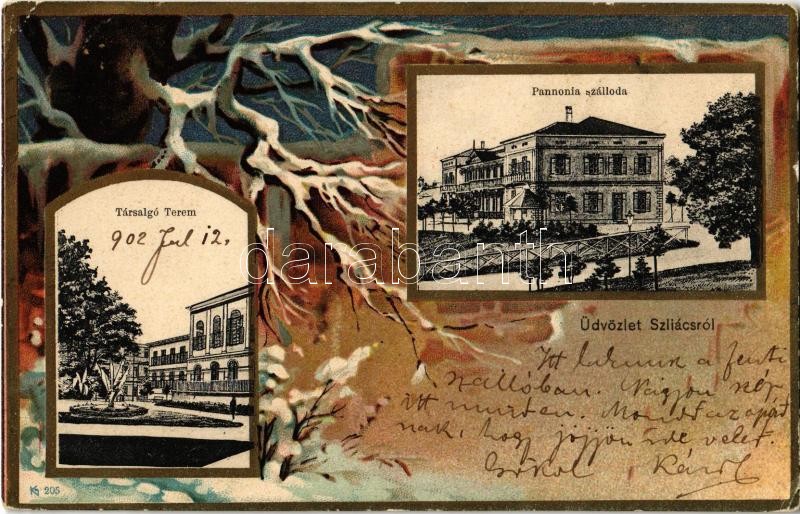 Pannonia szálloda
Társalgó Terem
902 Jul 12.
darabanth
Üdvözlet Szliácsról
Itt lakunk a fenti
szállóban. Nagyon szép
itt minden. Mondd az apád
nak, hogy jöjjön ide veled.
Csókol Károly
KG 205